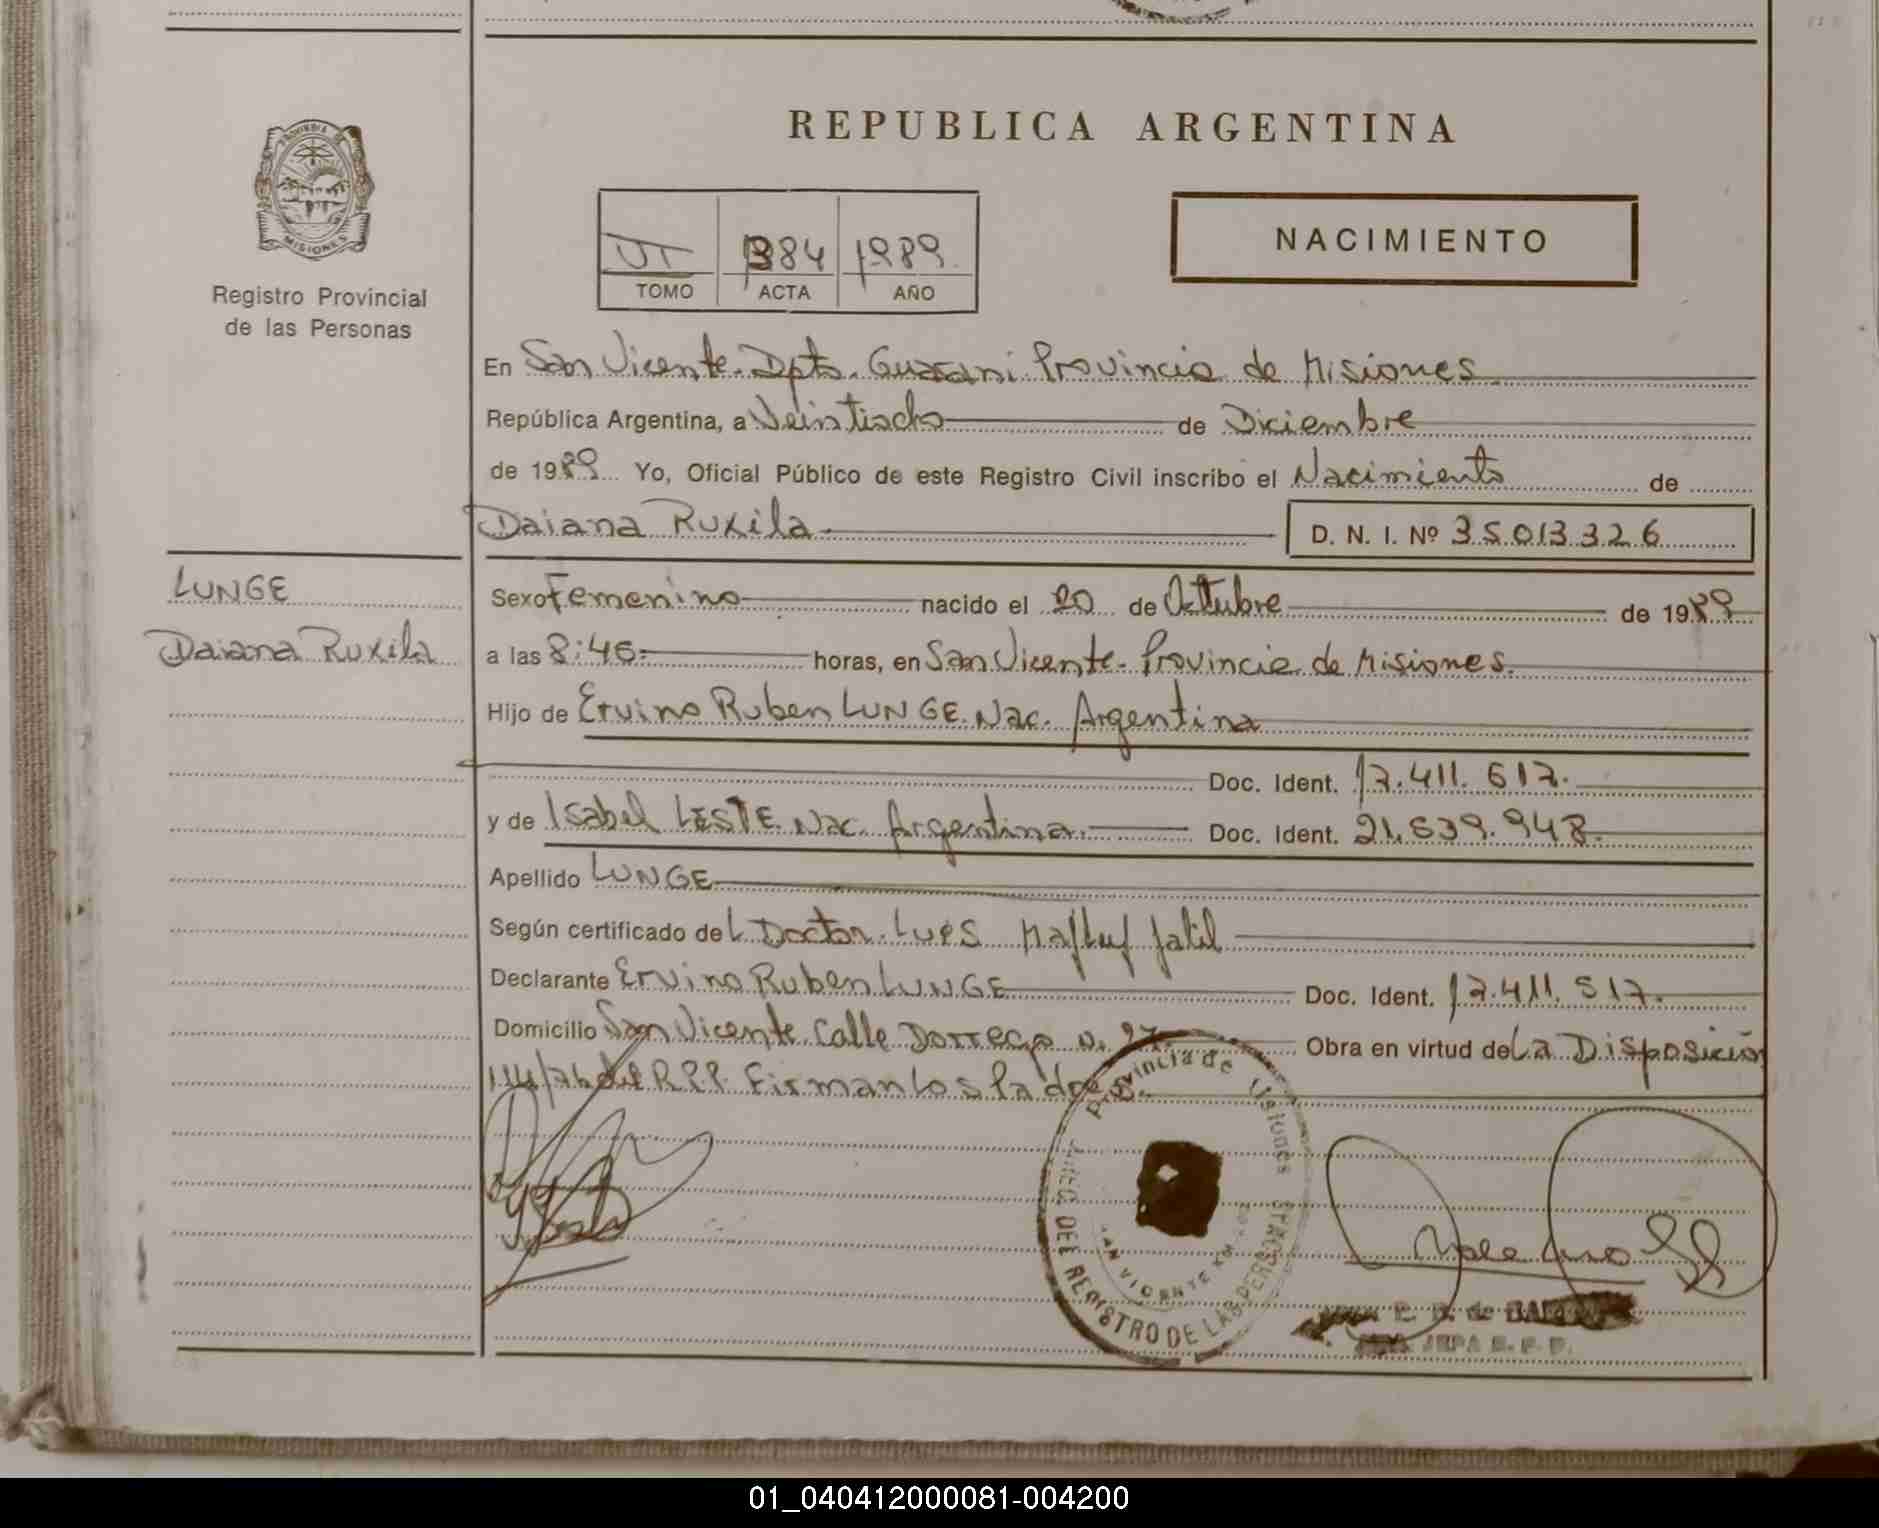 REPUBLICA ARGENTINA
PROVINCIA DE
MISIONES
Registro Provincial
de las Personas
NACIMIENTO
UT 384 1989
TOMO ACTA AÑO
En San Vicente. Dpto. Guarani Provincia de Misiones
República Argentina, a Veintiocho de Diciembre
de 1989 Yo, Oficial Público de este Registro Civil inscribo el Nacimiento de
Daiana Ruxila D. N. I. Nº 35013326
LUNGE
Daiana Ruxila
Sexo Femenino nacido el 20 de Octubre de 1989
a las 8:45 horas, en San Vicente. Provincia de Misiones.
Hijo de Ervino Ruben LUNGE. Nac. Argentina
Doc. Ident. 17.411.517.
y de Isabel LESTE. Nac. Argentina. Doc. Ident. 21.539.948.
Apellido LUNGE
Según certificado del Doctor. Luis Jalil
Declarante Ervino Ruben LUNGE Doc. Ident. 17.411.517.
Domicilio San Vicente Calle Dorrego n. 97. Obra en virtud de La Disposición
114/76 del R.P.P. Firman los Padres.
Provincia de Misiones
REGISTRO DE LAS PERSONAS
SAN VICENTE KM
JEFA R. P. P.
01_040412000081-004200